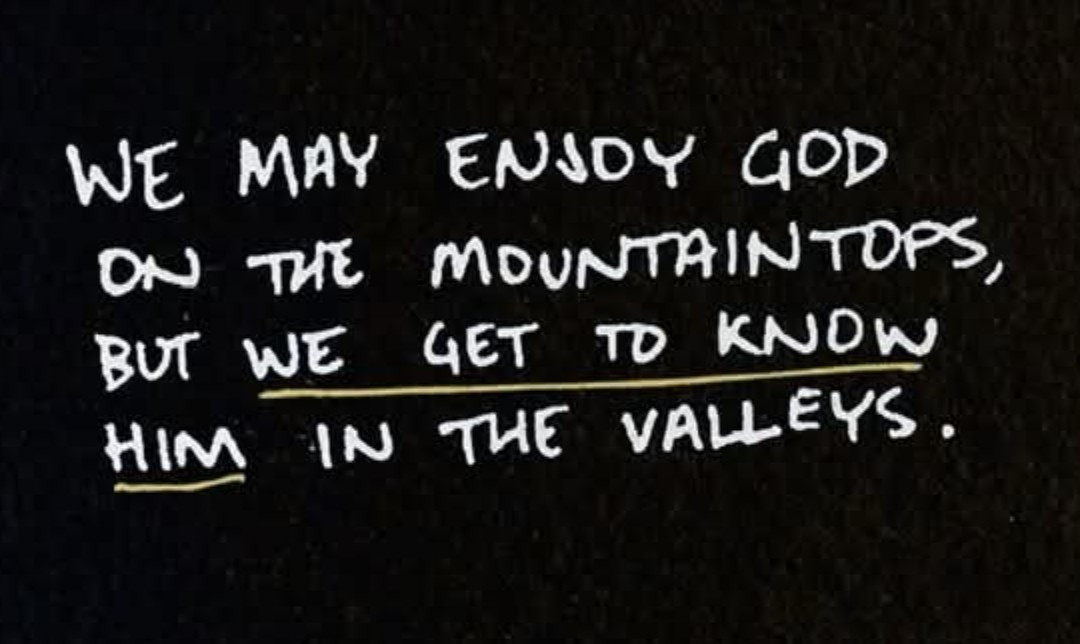 WE MAY ENJOY GOD
ON THE MOUNTAINTOPS,
BUT WE GET TO KNOW
HIM IN THE VALLEYS.